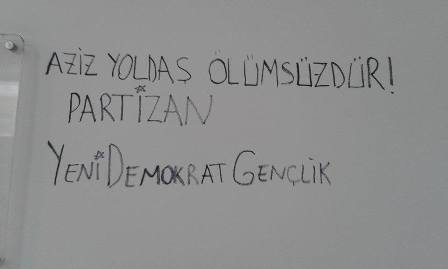 AZİZ YOLDAŞ ÖLÜMSÜZDÜR!
PARTİZAN
YENİ DEMOKRAT GENÇLİK